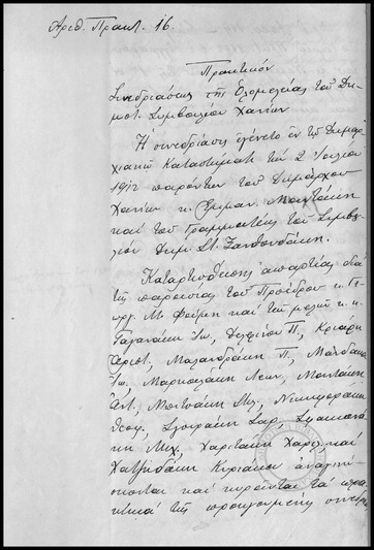 Αριθ. Πρακτ. 16
Πρακτικόν
Συνεδριάσεως της Ολομελείας του Δη-
μοτ. Συμβουλίου Χανίων
Η συνεδρίασις εγένετο εν τω Δημαρ-
χιακώ Καταστήματι τη 2 Ιουλίου
1912 παρόντων του Δημάρχου
Χανίων κ. Εμμαν. Μουντάκη
και του Γραμματέως του Συμβου-
λίου Δημ. Στ. Ξανθουδάκη.
Καταρτισθείσης απαρτίας διά
της παρουσίας του Προέδρου κ. Γε-
ωργ. Μ. Φούμη και των μελών κ. κ.
Γαγανάκη Ιω, Π, Κριάρη
Αριστ, Μαλανδράκη Π,
Ιω, Λεων, Μουντάκη
Αντ, Μιχ, Νικηφοράκη
Θεοφ, Σγουράκη Σαρ,
Μιχ, Χαριτάκη Χαριλ και
Χατζηδάκη Κυριάκου αναγινώ-
σκονται και κυρούνται τα πρα-
κτικά της προηγουμένης συνεδρι